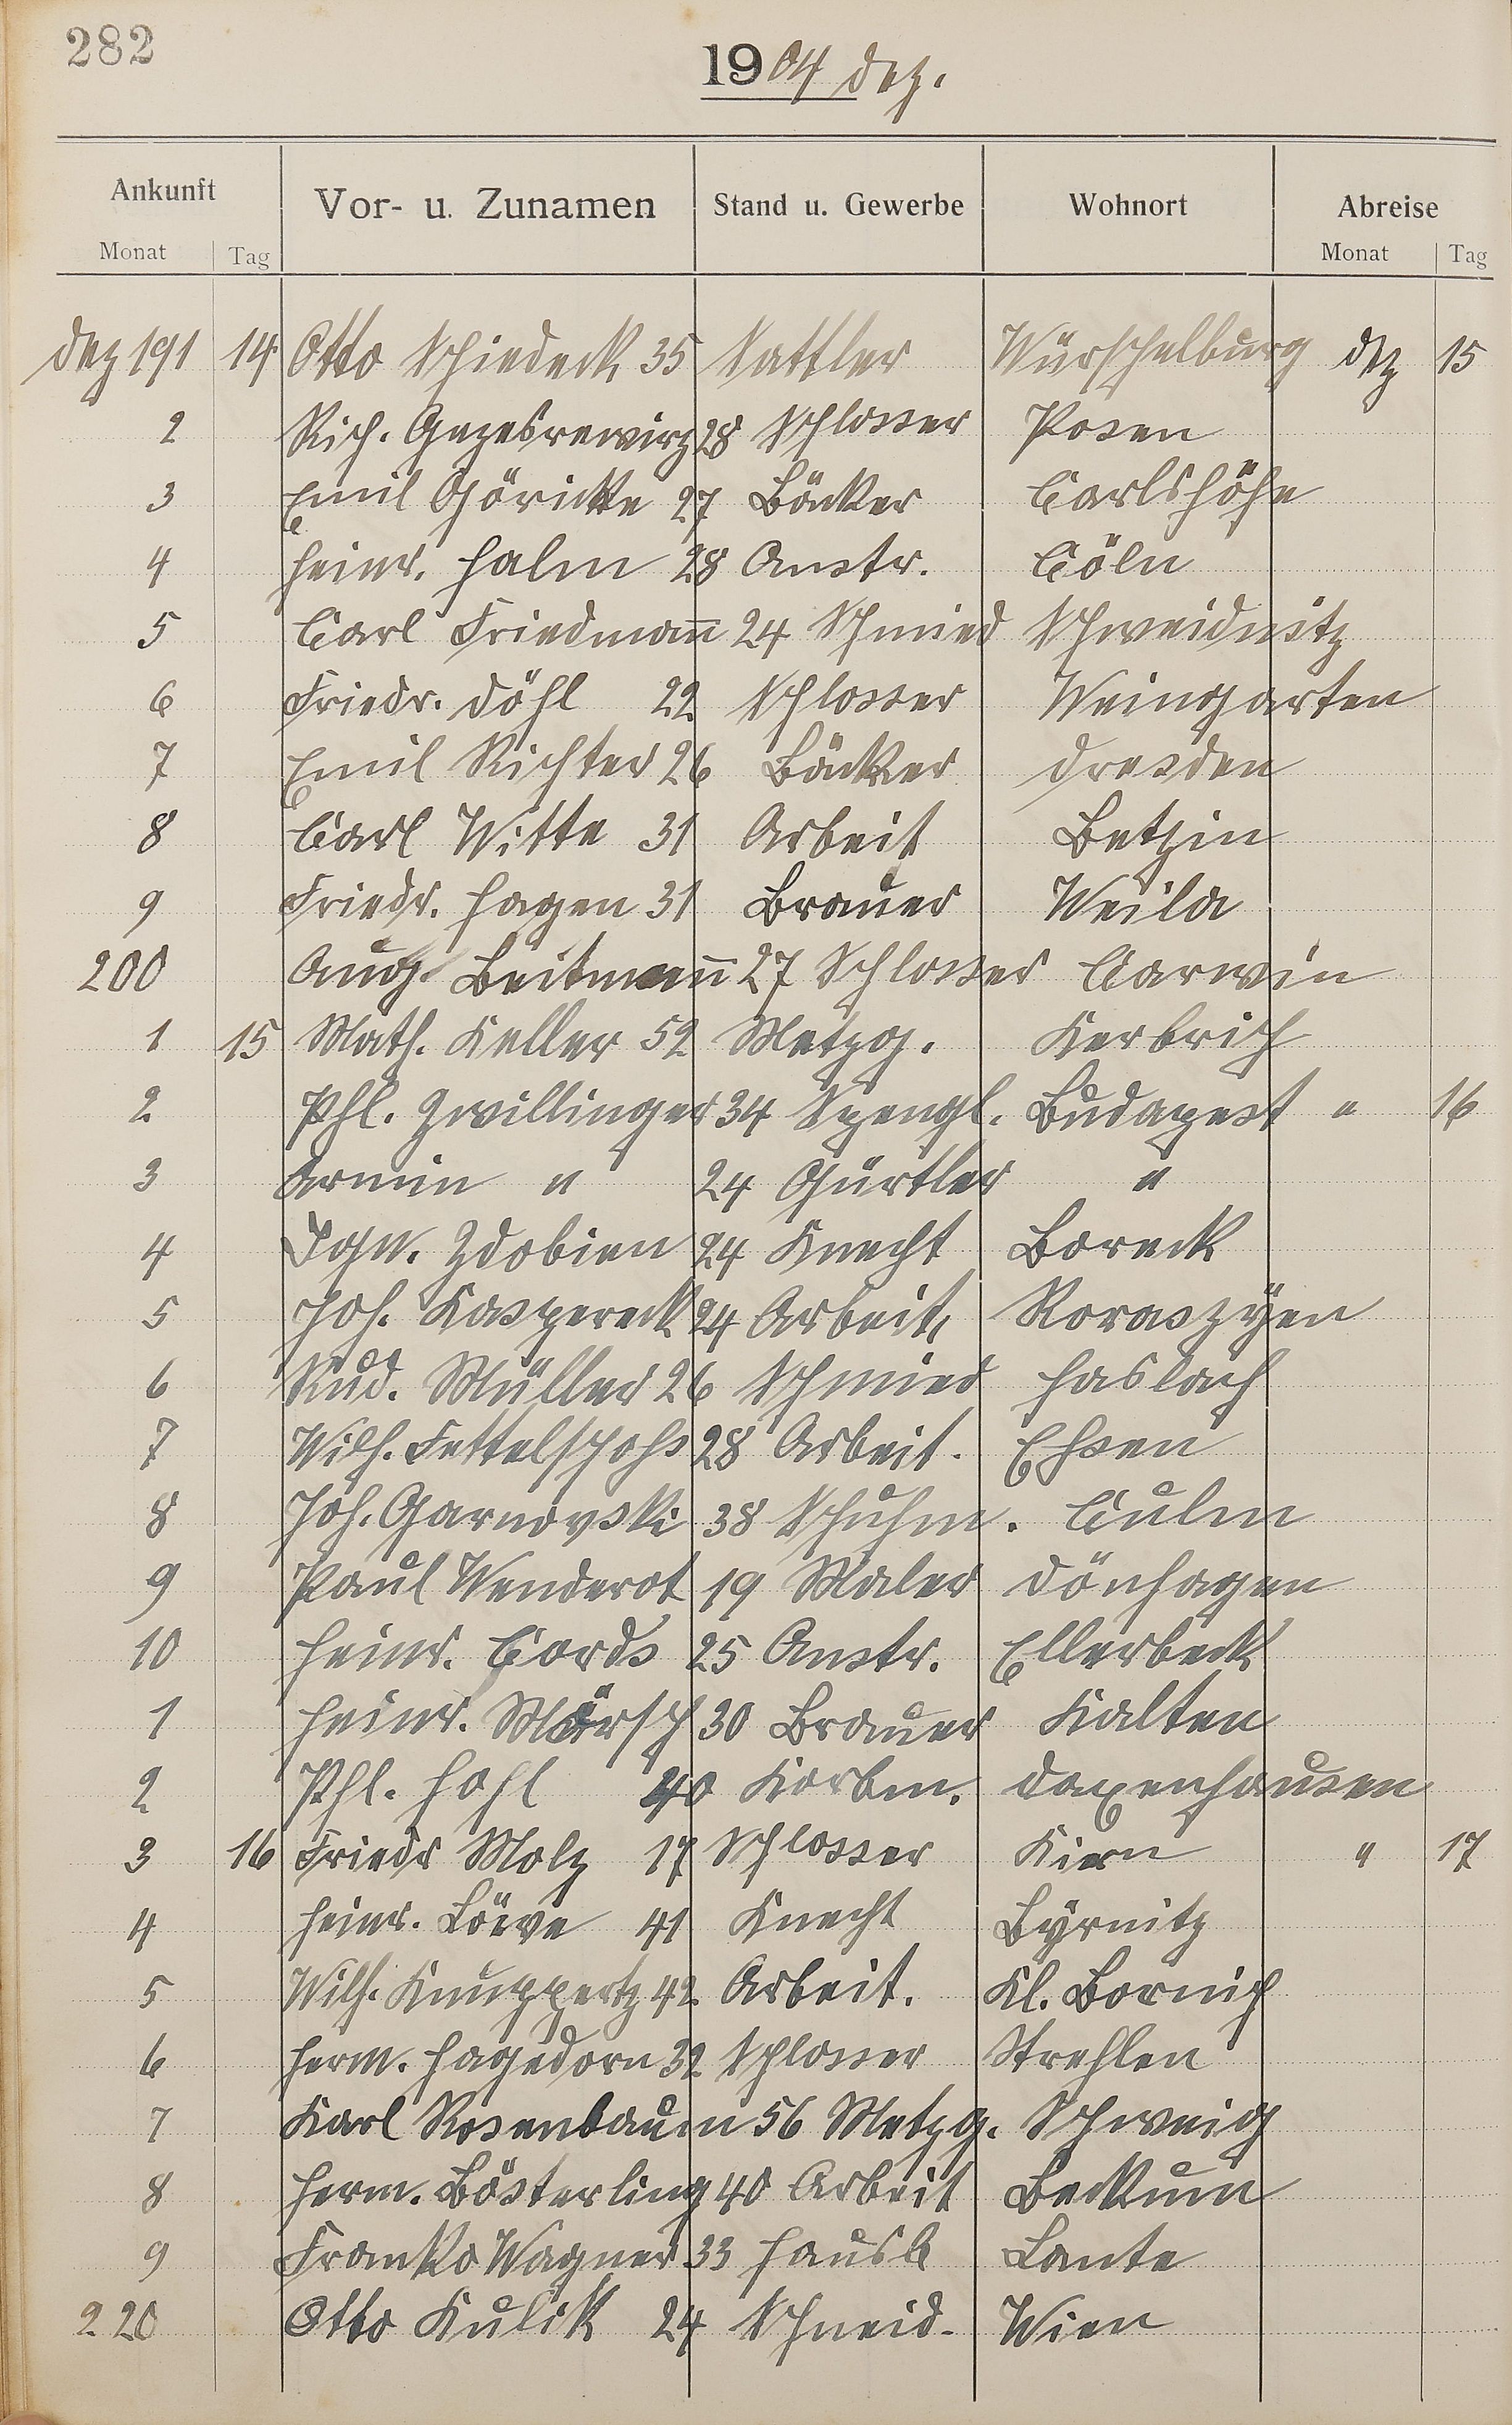 282
1904 Dez.
Ankunft Vor- u. Zunamen Stand u. Gewerbe Wohnort Abreise
Monat Tag Monat Tag
Dez 191 14 Otto Schiedeck 35 Sattler Würschelburg Dez 15
2 Rich. 28 Schlosser Posen
3 Emil Göricke 27 Bäcker Carlshöhe
4 Heinr. Halm 28 Anstr. Cöln
5 Carl Friedmann 24 Schmied Schweidnitz
6 Friedr. Döhl 22 Schlosser Weingarten
7 Emil Richter 26 Bäcker Dresden
8 Carl Witte 31 Arbeit Betzin
9 Friedr. Hagen 31 Brauer Weila
200 Aug. Beitmann 27 Schlosser Carwin
1 15 Math. Keller 52 Metzg. Kerbrich
2 Phl. Zwillinger 34 Spengl. Budapest " 16
3 Armin " 24 Gürtler "
4 Ign. Zdobien 24 Knecht Boreck
5 Joh. Kaspereck 24 Arbeit. Roraszÿen
6 Rud. Müller 26 Schmied Haslach
7 Wilh. Fettelschohs 28 Arbeit. Essen
8 Joh. Garnovski 38 Schuhm. Culm
9 Paul Wenderot 19 Maler Dönhagen
10 Heinr. Cords 25 Anstr. Ellerbeck
1 Heinr. Mörsch 30 Brauer Kalten
2 Phl. Hohl 40 Korbm. Daxenhausen
3 16 Friedr Molz 17 Schlosser Kirn " 17
4 Heinr. Löwe 41 Knecht Byrnitz
5 Wilh. Knuppertz 42 Arbeit. Kl. Bornich
6 Herm. Hagedorn 32 Schlosser Strehlen
7 Karl Rosenbaum 56 Metzg. Schweig
8 Herm. Bösterling 40 Arbeit Beckum
9 Franko Wagner 33 Hausb Lante
220 Otto Kulik 24 Schneid. Wien